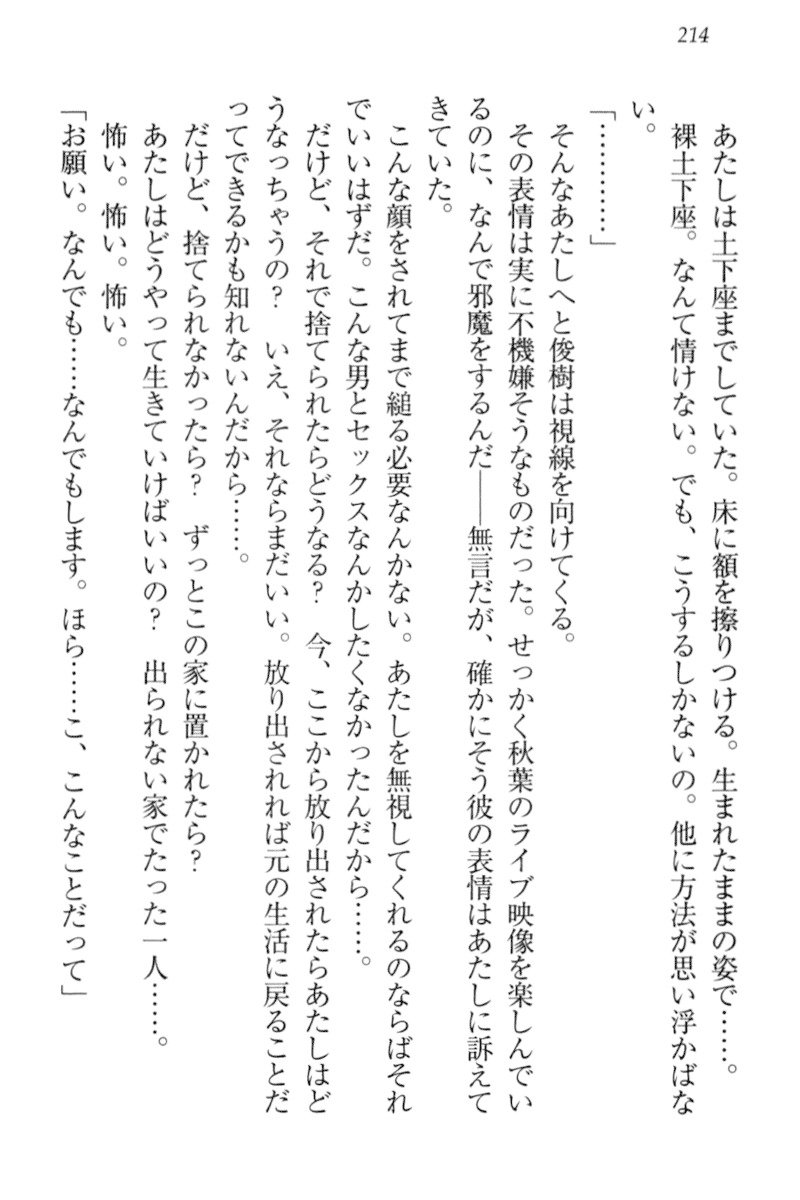 214
あたしは土下座までしていた。床に額を擦りつける。生まれたままの姿で……。
裸土下座。なんて情けない。でも、こうするしかないの。他に方法が思い浮かばな
い。
「…………」
そんなあたしへと俊樹は視線を向けてくる。
その表情は実に不機嫌そうなものだった。せっかく秋葉のライブ映像を楽しんでい
るのに、なんで邪魔をするんだ――無言だが、確かにそう彼の表情はあたしに訴えて
きていた。
こんな顔をされてまで縋る必要なんかない。あたしを無視してくれるのならばそれ
でいいはずだ。こんな男とセックスなんかしたくなかったんだから……。
だけど、それで捨てられたらどうなる？　今、ここから放り出されたらあたしはど
うなっちゃうの？　いえ、それならまだいい。放り出されれば元の生活に戻ることだ
ってできるかも知れないんだから……。
だけど、捨てられなかったら？　ずっとこの家に置かれたら？
あたしはどうやって生きていけばいいの？　出られない家でたった一人……。
怖い。怖い。怖い。
「お願い。なんでも……なんでもします。ほら……こ、こんなことだって」